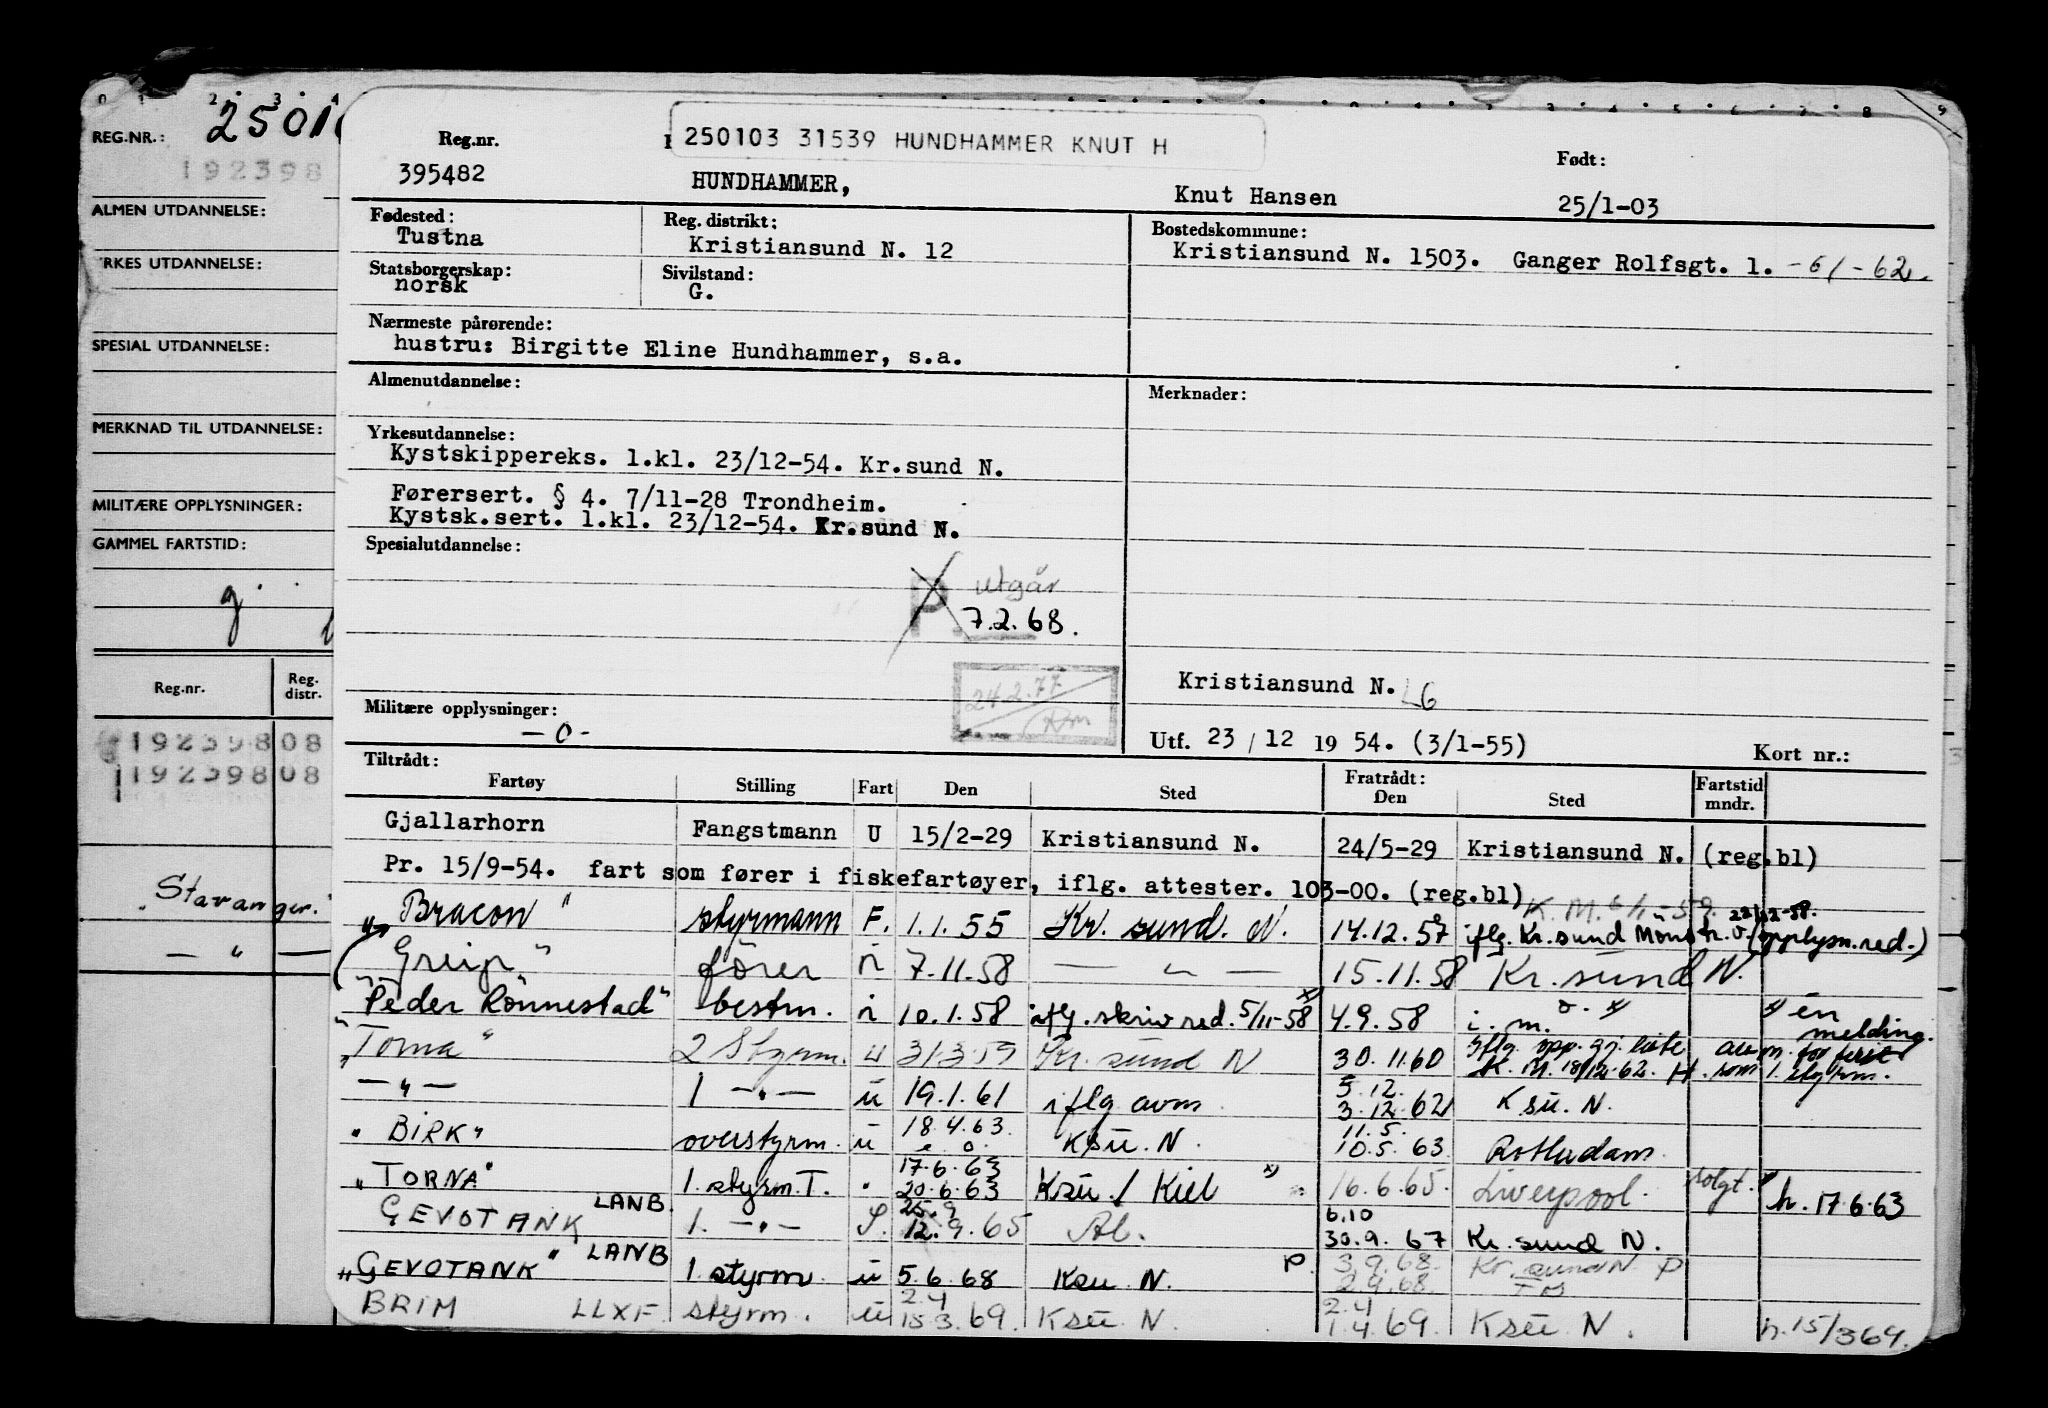 REG.NR.:
192398
ALMEN UTDANNELSE:
YRKES UTDANNELSE:
SPESIAL UTDANNELSE:
MERKNAD TIL UTDANNELSE:
MILITÆRE OPPLYSNINGER:
GAMMEL FARTSTID:
g.
Reg.nr. Reg. distr.
192398 08
192398 08
Stavanger.
— " —
250103 31539 HUNDHAMMER KNUT H
Reg.nr. Født:
395482 HUNDHAMMER, Knut Hansen 25/1-03
Fødested: Reg. distrikt: Bostedskommune:
Tustna Kristiansund N. 12 Kristiansund N. 1503. Ganger Rolfsgt. 1. -61-62.
Statsborgerskap: Sivilstand:
norsk G.
Nærmeste pårørende:
hustru: Birgitte Eline Hundhammer, s.a.
Almenutdannelse: Merknader:
Yrkesutdannelse:
Kystskippereks. 1.kl. 23/12-54. Kr.sund N.
Førersert. § 4. 7/11-28 Trondheim.
Kystsk.sert. 1.kl. 23/12-54. Kr.sund N.
Spesialutdannelse:
P. utgår
7.2.68.
24.2.77
Kristiansund N.
Militære opplysninger:
-0-
Utf. 23 / 12 19 54. (3/1-55) Kort nr.:
Tiltrådt: Fratrådt:
Fartøy Stilling Fart Den Sted Den Sted Fartstid mndr.
Gjallarhorn Fangstmann U 15/2-29 Kristiansund N. 24/5-29 Kristiansund N. (reg.bl)
Pr. 15/9-54. fart som fører i fiskefartøyer, iflg. attester. 103-00. (reg.bl)
"Bracon" styrmann F. 1.1.55 Kr.sund. N. 14.12.57 iflg. Kr.sund Mønstr. (opplysn.red.)
"Greip" fører i 7.11.58 — " — 15.11.58 Kr.sund N.
"Peder Rønnestad" bestm. i 10.1.58 iflg. skriv red. 5/11-58 x) 4.9.58 i. m. o. x) x) én melding.
"Torna" 2 Styrm. u 31.3.59 Kr.sund N 30.11.60 iflg. opp. gj. liste K.M. 18/12-62. H. som 1. styrm.
— " — 1 — " — u 19.1.61 iflg avm 5.12. 3.12.62 K.su. N.
"BIRK" overstyrm. u 18.4.63. Ksu. N. 11.5. 10.5.63 Rotterdam
"TORNA" 1. styrm. T. " 17.6.63 20.6.63 Ksu. / Kiel x) 16.6.65. Liverpool. solgt. x) h. 17.6.63
GEVOTANK LANB 1. — " — S. 25.9 12.9.65 Al. 6.10 30.9.67 Kr.sund N.
"GEVOTANK" LANB 1. styrm. u 5.6.68 Ksu. N. P. 3.9.68. 2.9.68. Kr.sund N P
BRIM LLXF styrm. u 2.4 15.3.69. Ksu N. 2.4 1.4.69. Ksu N. h. 15/369.